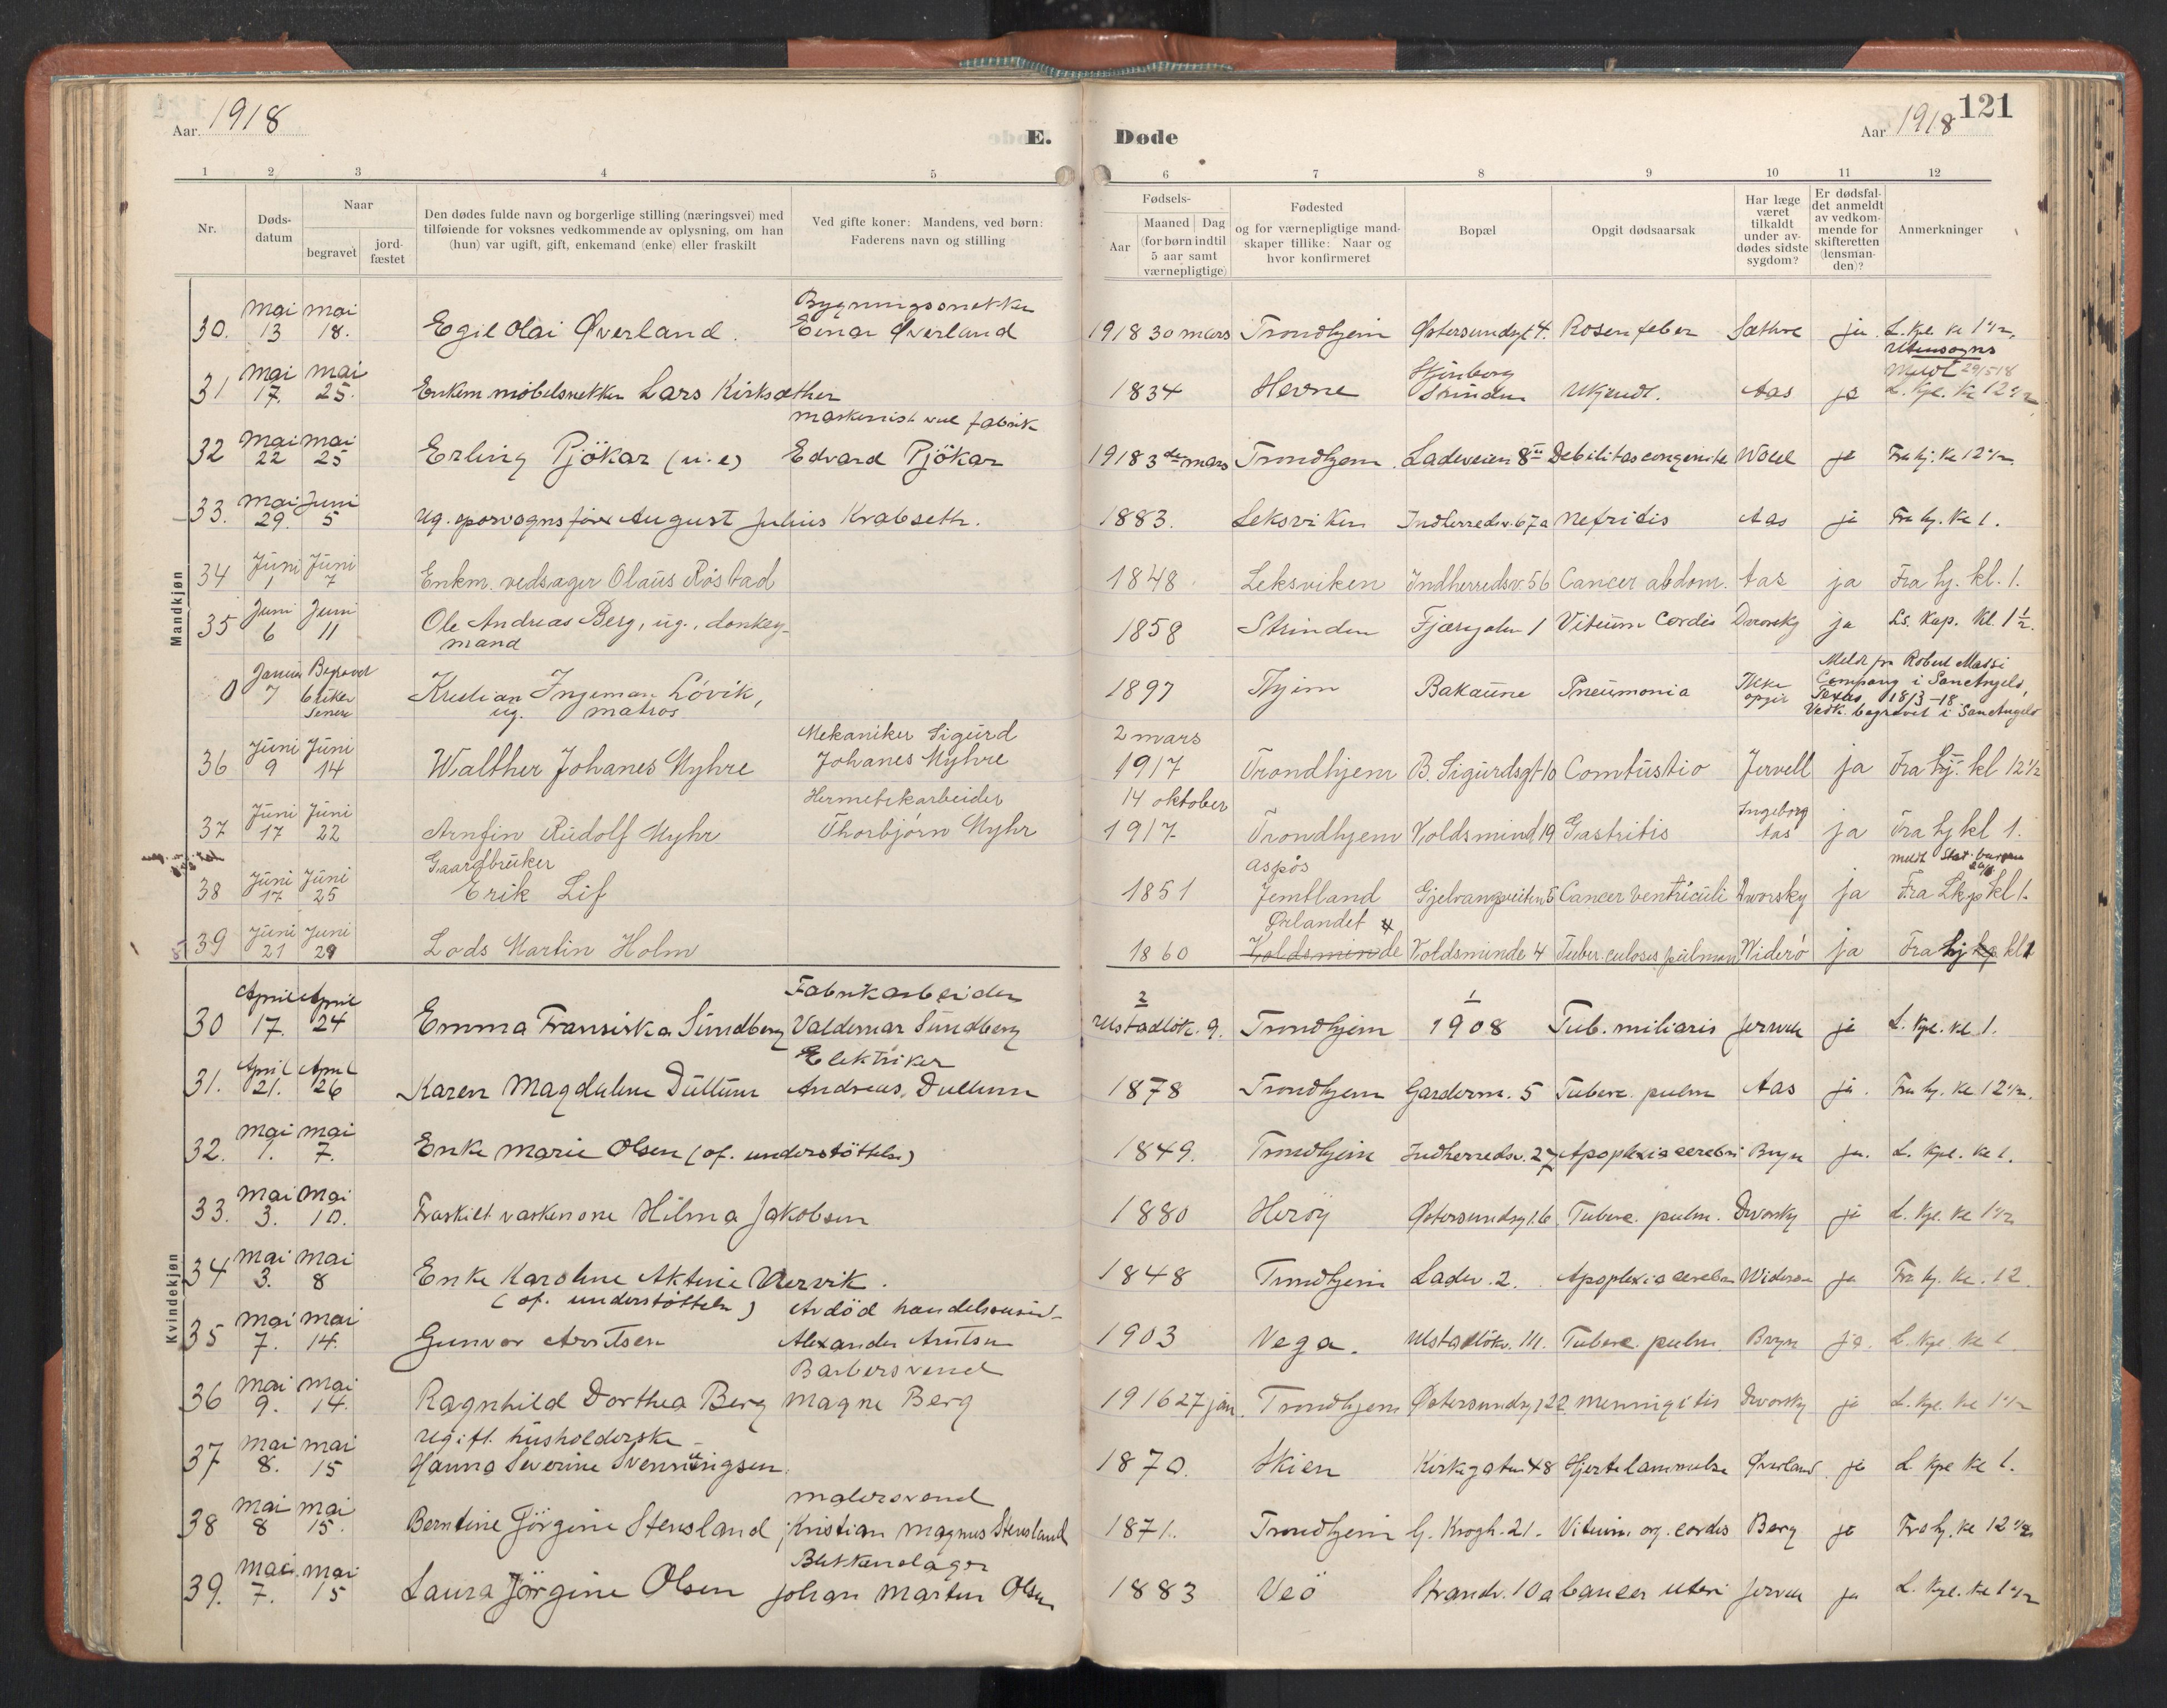 Aar 1918
E. Døde
Aar 1918
121
1 2 3 4 5 6 7 8 9 10 11 12
Nr.
Døds-
datum
Naar
begravet
jord-
fæstet
Den dødes fulde navn og borgerlige stilling (næringsvei) med
tilføiende for voksnes vedkommende av oplysning, om han
(hun) var ugift, gift, enkemand (enke) eller fraskilt
Ved gifte koner: Mandens, ved børn:
Faderens navn og stilling
Fødsels-
Aar
Maaned Dag
(for børn indtil
5 aar samt
værnepligtige)
Fødested
og for værnepligtige mand-
skaper tillike: Naar og
hvor konfirmeret
Bopæl
Opgit dødsaarsak
Har læge
været
tilkaldt
under av-
dødes sidste
sygdom?
Er dødsfal-
det anmeldt
av vedkom-
mende for
skifteretten
(lensman-
den)?
Anmerkninger
Mandkjøn
mai mai Bygningssnekker
30. 13 18. Egil Olai Øverland. Einar Øverland 1918 30 mars Trondhjem Østersundsgt 4. Rosenfeber Sæthre ja L. Kpl. kl 1 1/2
Utensogns
meldt 29/5 18
mai mai
31 17. 25. Enkem møbelsnekker Lars Kirksæther 1834 Hevne Strinden Ukjendt. Aas ja L. Kpl. kl 12 1/2
maskinist
mai mai
32 22 25 Erling Pjökar (u.e) Edvard Pjökar 1918 3de mars Trondhjem Ladeveien 8 Debilitas congenita ja Fra hj. kl 12 1/2
mai Juni
33. 29. 5 ug. sporvognsfører August Julius Krabseth. 1883. Leksviken Indherredsv. 67a Nefritis Aas ja Fra hj. kl 1.
Juni Juni
34 1 7 Enkm. vedsager Olaus Røstad 1848 Leksviken Indherredsv. 56 Cancer abdom. Aas ja Fra hj. kl. 1.
Juni Juni
35 6 11 Ole Andreas Berg, ug., donkey-
mand 1858 Strinden Fjæregaten 1 Vitium Cordis Dworsky ja Ls. Kap. Kl. 1 1/2.
Januar Begravet
0 7 6 uker
senere Kristian Ingeman Løvik,
ug. matros 1897 Thjem Bakaune Pneumonia Ikke
opgit
Meldt fra Robert Massi
Company i San Angelo,
Texas, 18/3-18
Vedk. begravet i San Angelo
Juni Juni Mekaniker Sigurd 2 mars
36 9 14 Walther Johanes Myhre Johanes Myhre 1917 Trondhjem B. Sigurdsgt 10 Combustio Jervell ja Fra hj. kl 12 1/2
Juni Juni Hermetikarbeider 14 oktober Ingeborg
37 17 22 Arnfin Rudolf Myhr Thorbjørn Myhr 1917 Trondhjem Voldsmind 19 Gastritis Aas ja Fra hj kl 1.
Gaardbruker
Juni Juni Aspös
38 17 25 Erik Lif 1851 Jemtland Gjelvangveiten 5 Cancer ventriculi Dworsky ja Fra Lkp kl 1.
Juni Juni Ørlandet
39 21 29 Lods Martin Holm 1860 Voldsminde Voldsminde 4 Tuberculosis pulmon Widerö ja Fra hj kl 1
Kvindekjøn
April April Fabrikarbeider 2 1
30 17. 24 Emma Fransiska Sundberg Valdemar Sundberg Ulstadløk. 9. Trondhjem 1908 Tub. miliaris Jervell ja L. Kpl. kl 1.
April April Elektriker
31. 21. 26 Karen Magdalene Dullum Andreas Dullum 1878 Trondhjem Garderm. 5 Tuberc. pulm Aas ja. Fra hj. kl 12 1/2.
mai mai
32. 1. 7. Enke Marie Olsen (of. understöttelse) 1849. Trondhjem Indherredsv. 27 Apoplexia cerebri Bryn ja. L. Kpl. kl 1.
mai mai
33. 3. 10. Fraskilt vaskekone Hilma Jakobsen 1880 Herøy Østersundsgt. 6 Tuberc. pulm. Dworsky ja L. Kpl. kl 1 1/2
mai mai
34 3. 8 Enke Karoline Aktine Værvik.
(of. understöttelse) 1848 Trondhjem Ladev. 2. Apoplexia cerebri Wideröe ja Fra hj. kl. 12
mai mai Avdöd
35 7. 14. Gunvor Arntsen Alexander Arntsen 1903 Vega. Ulstadløkv. Tuberc. pulm. Bryn ja. L. Kpl. kl 1.
mai mai Barbersvend
36 9. 14. Ragnhild Dorthea Berg Magne Berg 1916 27 jan. Trondhjem Østersundsgt 22 Menningitis Dworsky ja L. Kpl. kl 1 1/2
mai mai ugift. husholderske
37 8. 15 Hanna Severine Svenningsen. 1870. Skien Kirkegaten 48 Hjertelammelse Øverland ja L. Kpl kl 1.
mai mai malersvend
38 8 15. Berntine Jörgine Stensland Kristian Magnus Stensland 1871. Trondhjem G. Krogh. 21. Vitium org. cordis Berg ja Fra hj. kl 12 1/2
mai mai Blikkenslager
39. 7. 15 Laura Jörgine Olsen Johan Martin Olsen 1883 Veö Strandv. 10a Cancer uteri Jervell ja L. Kpl. kl 1 1/2